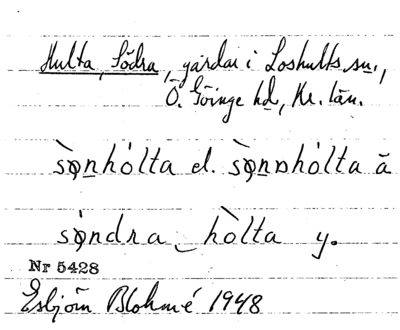 Hulta, Södra, gårdar i Loshults sn.,
Ö. Göinge hd, Kr. län.
sò̭nhólta el. sò̭nɒhólta ä
só̭ndra‿hòlta y.
Nr 5428
Esbjörn Blohmé 1948